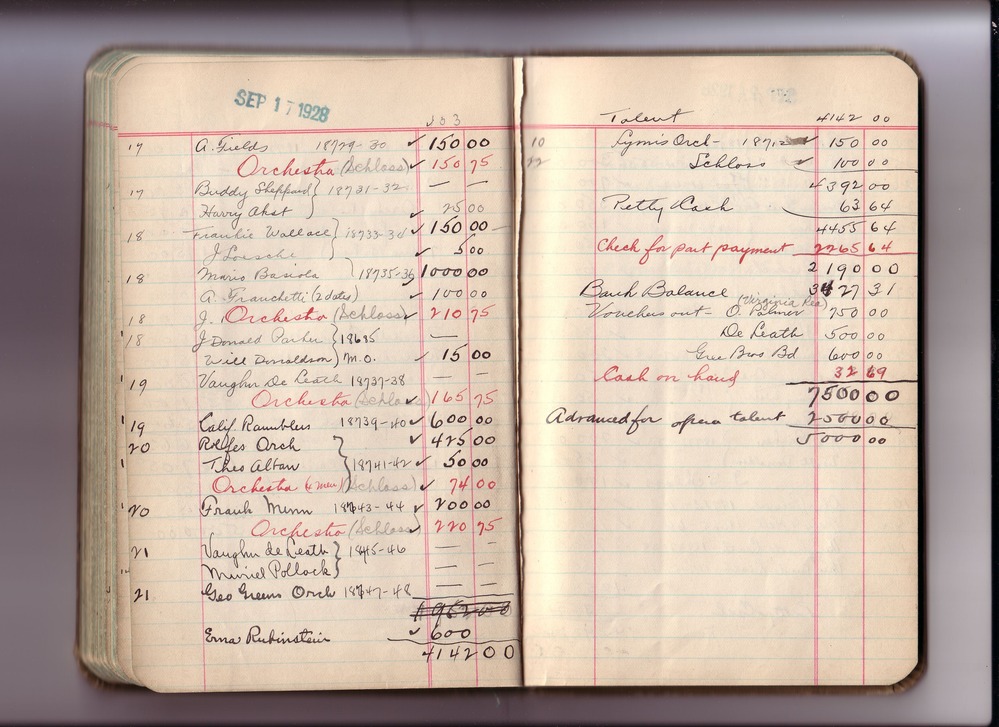 SEP 17 1928
17 A. Fields 18729-30 ✓ 150 00
Orchestra (Schloss) ✓ 150 75
17 Buddy Sheppard } 18731-32 — —
Harry Akst ✓ 25 00
18 Frankie Wallace } 18733-34 ✓ 150 00
✓ 5 00
18 Mario Basiola } 18735-36 1000 00
A. Franchetti (2 dates) ✓ 100 00
18 J. Orchestra (Schloss) ✓ 210 75
18 J Donald Parker } 18695 —
Will Donaldson } M.O. ✓ 15 00
19 Vaughn De Leath 18737-38 — —
Orchestra (Schloss) 165 75
19 Calif Ramblers 18739-40 ✓ 600 00
20 Rolfes Orch } ✓ 425 00
Theo Alban } 18741-42 ✓ 50 00
Orchestra (4 men) (Schloss) ✓ 74 00
20 Frank Munn 18743-44 ✓ 200 00
Orchestra (Schloss ✓ 220 75
21 Vaughn de Leath } 18745-46 — —
Muriel Pollock } — —
21 Geo Greens Orch 18747-48 — —
Erna Rubinstein ✓ 600
4142 00
Talent 4142 00
10 Orch- 1871 ✓ 150 00
22 Schloss ✓ 100 00
4392 00
Petty Cash 63 64
4455 64
Check for part payment 2265 64
2190 00
Bank Balance 3427 31
(Virginia Rea)
Vouchers out - O. Palmer 750 00
De Leath 500 00
Gree Bros Bd 600 00
Cash on hand 32 69
7500 00
Advanced for opera talent 2500 00
5000 00